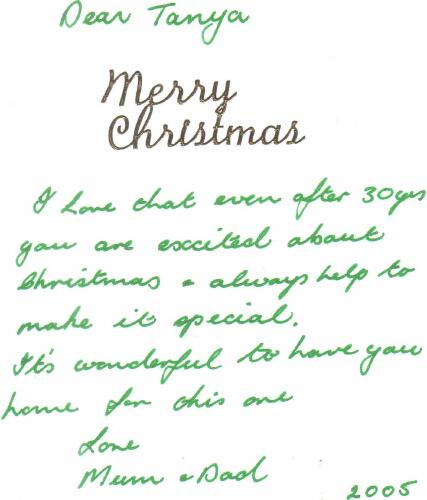 Dear Tanya
Merry
Christmas
I love that even after 30yrs
you are excited about
Christmas & always help to
make it special.
It's wonderful to have you
home for this one
Love
Mum & Dad
2005